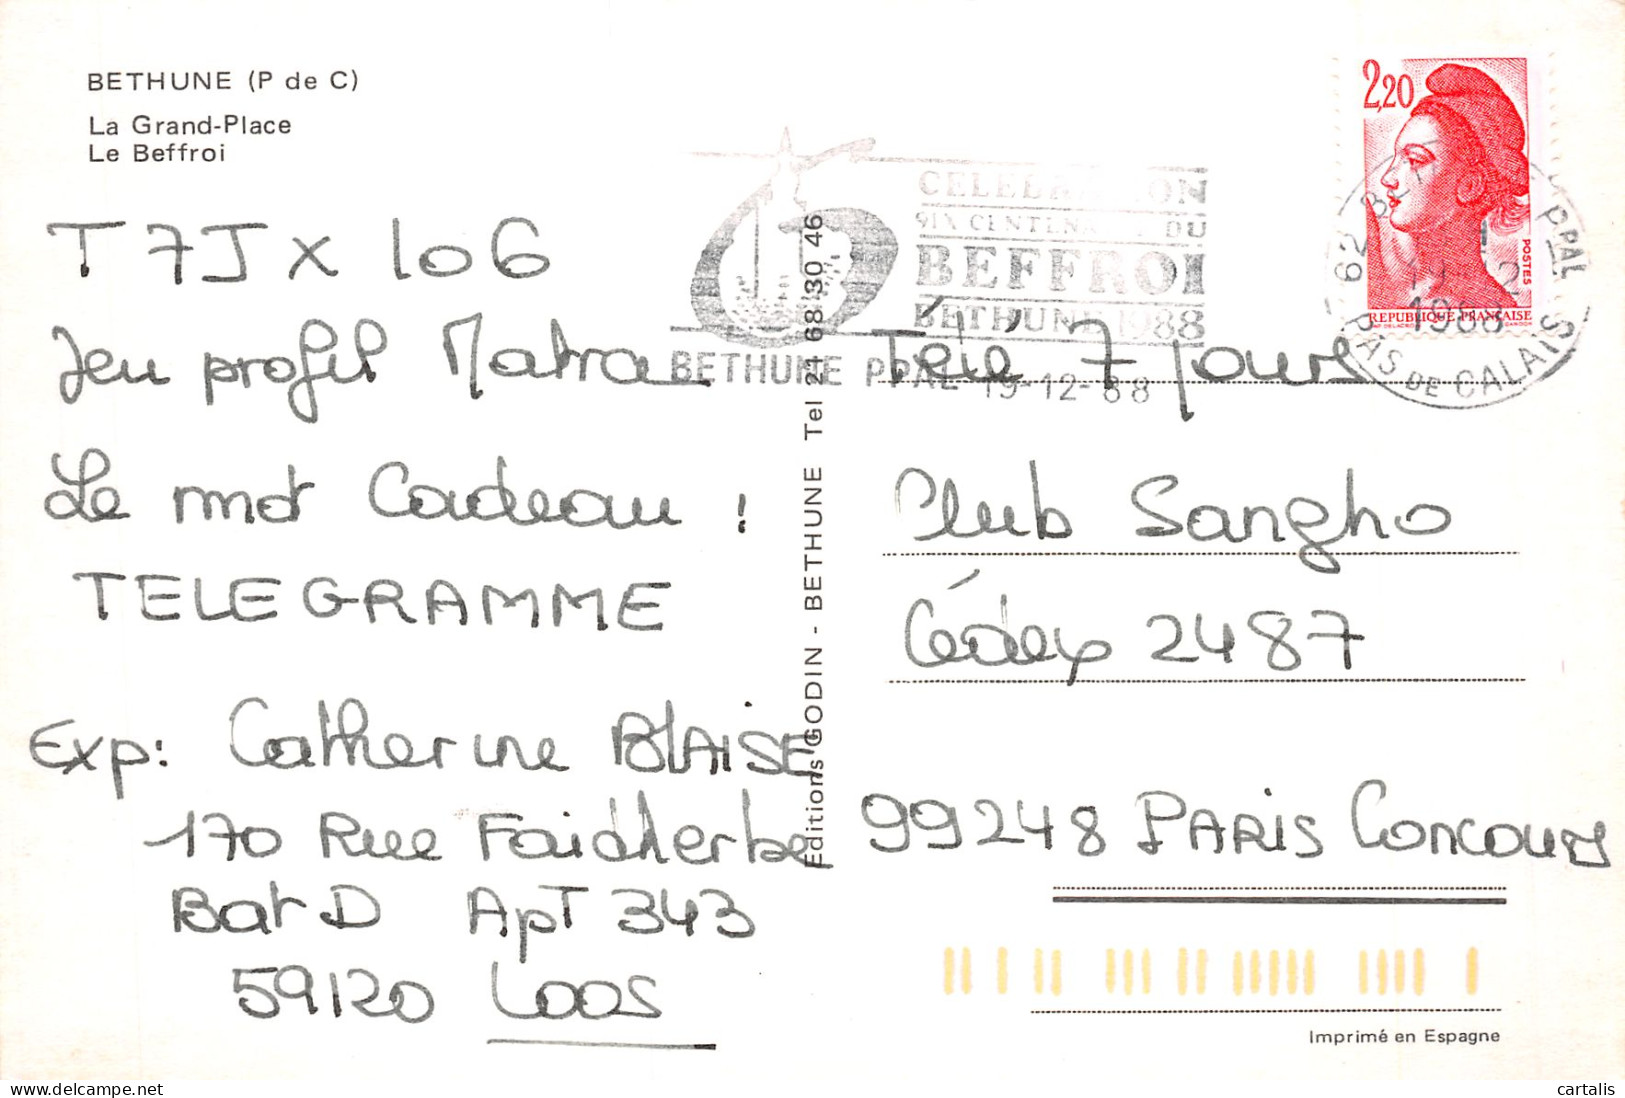 BETHUNE (P de C)
La Grand-Place
Le Beffroi
T 7J x 106
Jeu profil Matra
Le mot Cadeau !
TELEGRAMME
Exp: Catherine BLAISE
170 Rue Faidherbe
Bat D ApT 343
59120 Loos
Editions GODIN - BETHUNE Tel 21 68 30 46
CELEBRATION
9IX CENTENAIRE DU
BEFFROI
BETHUNE 1988
BETHUNE PPAL 19-12-88
2,20
POSTES
REPUBLIQUE FRANÇAISE
62 BETHUNE PPAL
19-12
1988
PAS DE CALAIS
Télé 7 jours
Club Sangho
Cédex 2487
99248 PARIS Concours
Imprimé en Espagne
cartalis